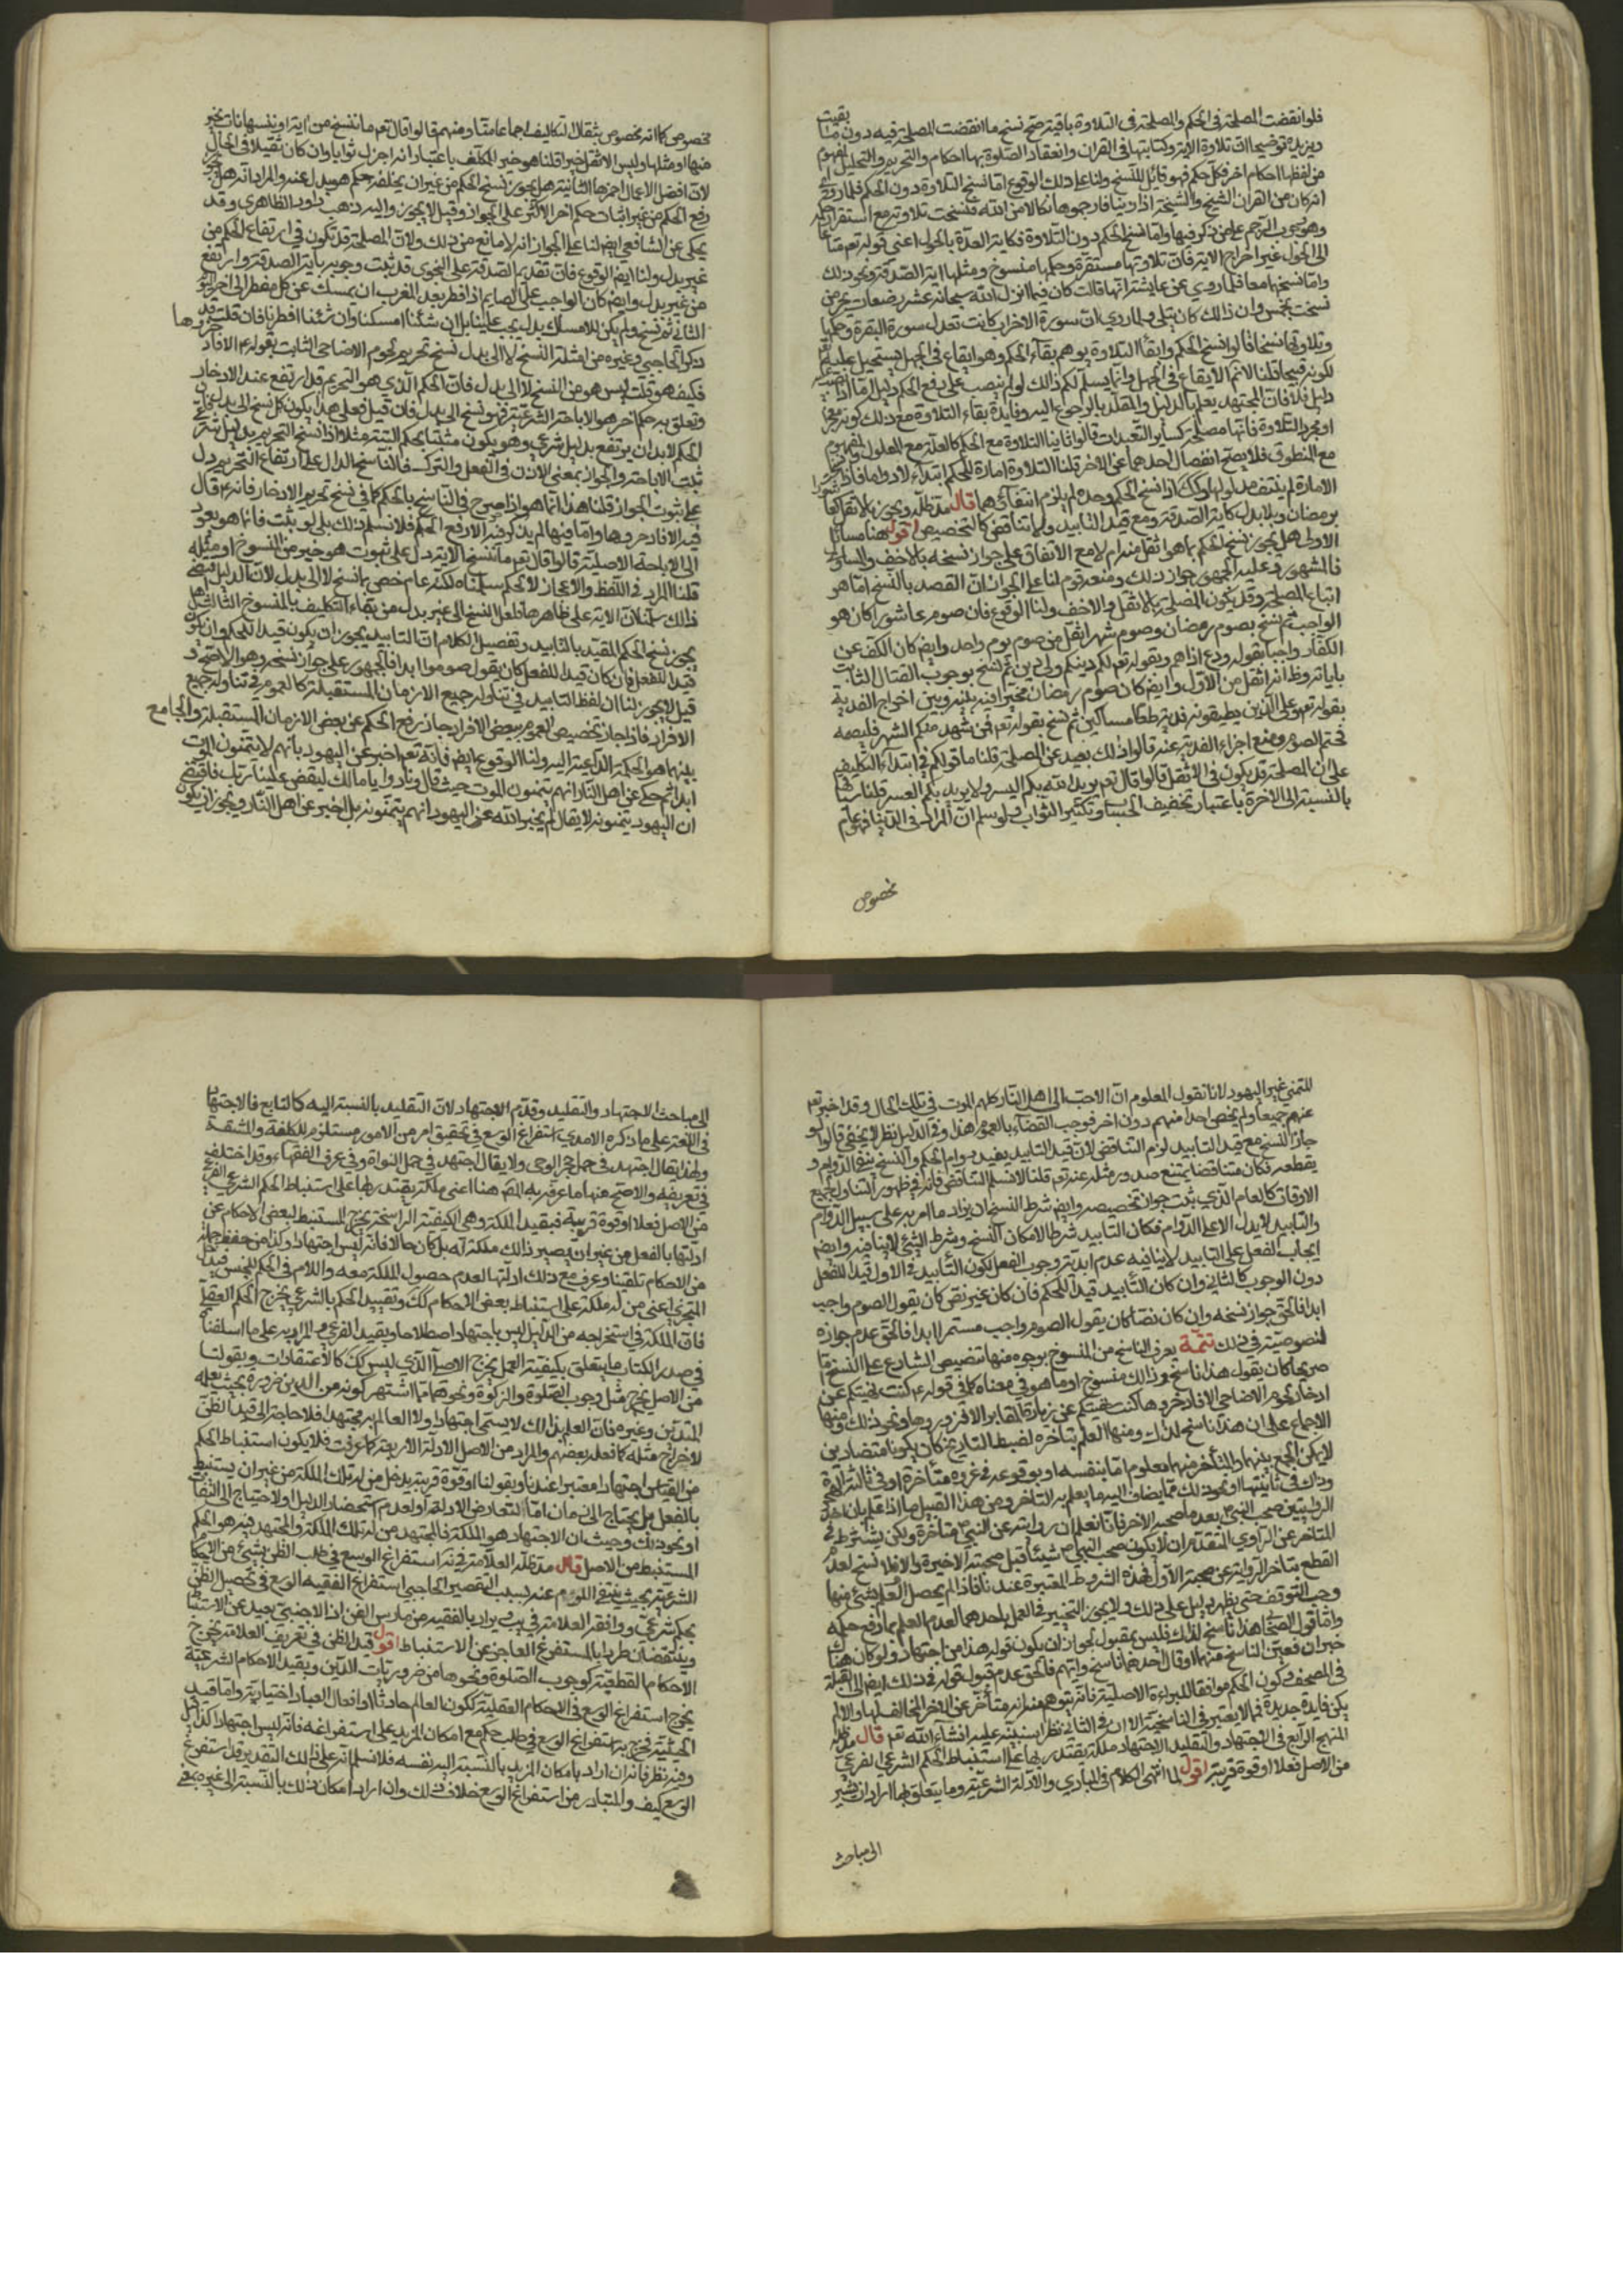 فلو انقضت المصلحة في الحكم والمصلحة في التلاوة باقية صح نسخ ما انقضت المصلحة فيه دون ما بقيت
ويزيده توضيحا ان تلاوة الاية وكتابتها في القران وانعقاد الصلوة بها احكام والتحريم والتحليل المفهوم
من لفظها احكام اخر فكل حكم فهو قابل للنسخ ولنا على ذلك الوقوع اما نسخ التلاوة دون الحكم فلما روي
انه كان من القران الشيخ والشيخة اذا زنيا فارجموهما نكالا من الله فنسخت تلاوته مع استقرار حكمه
وهو وجوب الرجم على من ذكر فيها واما نسخ الحكم دون التلاوة فكاية العدة بالحول اعني قوله تعم متاعا
الى الحول غير اخراج الاية فان تلاوتها مستقرة وحكمها منسوخ ومثلها اية الصدقة ونحو ذلك
واما نسخهما معا فلما روي عن عايشة انها قالت كان فيما انزل الله سبحانه عشر رضعات محرمن
نسخت بخمس وان ذلك كان يتلى ولما روي ان سورة الاحزاب كانت تعدل سورة البقرة وحكمها
وتلاوتها نسخا قالوا نسخ الحكم وابقاء التلاوة يوهم بقاء الحكم وهو ايقاع في الجهل يستحيل عليه تعم
لكونه قبيحا قلنا لا نم الايقاع في الجهل وانما يسلم لكم ذلك لو لم ينصب على رفع الحكم دليل اما اذا نصب عليه
دليل فلا فان المجتهد يعلم بالدليل والمقلد بالرجوع اليه وفايدة بقاء التلاوة مع ذلك كونه معجزا
او مجرد التلاوة فانها مصلحة كساير التعبدات قالوا ثانيا التلاوة مع الحكم كالعلة مع المعلول والمفهوم
مع المنطوق فلا يصح انفصال احدهما عن الاخر قلنا التلاوة امارة للحكم ابتداء لا دواما فاذا نسخت
الامارة لم ينتف مدلولها وكك اذا نسخ الحكم وحده لم يلزم انتفائهما قال مد ظله ويجوز بالاثقل كعاشورا
برمضان وبلا بدل كاية الصدقة ومع قيد التابيد ولا تناقض كالتخصيص اقول هنا مسائل
الاولى هل يجوز نسخ الحكم بما هو اثقل منه ام لا مع الاتفاق على جواز نسخه بالاخف والمساوي
فالمشهور وعليه الجمهور جواز ذلك ومنعه قوم لنا على الجواز ان القصد بالنسخ انما هو
اتباع المصلحة وقد يكون المصلحة بالاثقل والاخف ولنا الوقوع فان صوم عاشورا كان هو
الواجب ثم نسخ بصوم رمضان وصوم شهر اثقل من صوم يوم واحد وايض كان الكف عن
الكفار واجبا بقوله ودع اذاهم وبقوله تعم لكم دينكم ولي دين ثم نسخ بوجوب القتال الثابت
باياته وظ انه اثقل من الاول وايض كان صوم رمضان مخيرا فيه بينه وبين اخراج الفدية
بقوله تعم وعلى الذين يطيقونه فدية طعام مساكين ثم نسخ بقوله تعم فمن شهد منكم الشهر فليصمه
فحتم الصوم ومنع اجزاء الفدية عنه قالوا ذلك بعيد عن المصلحة قلنا ما قولكم في ابتداء التكليف
على ان المصلحة قد يكون في الاثقل قالوا قال تعم يريد الله بكم اليسر ولا يريد بكم العسر قلنا
بالنسبة الى الاخرة باعتبار تخفيف الحساب وتكثير الثواب ولو سلم ان المراد في الدنيا فهو عام
مخصوص
مخصوص كما انه مخصوص بثقال التكاليف اجماعا منا ومنهم قالوا قال تعم ما ننسخ من اية او ننسها نات بخير
منها او مثلها وليس الاثقل خيرا قلنا هو خير للمكلف باعتبار انه اجزل ثوابا وان كان ثقيلا في الحال
لان افضل الاعمال احمزها الثانية هل يجوز نسخ الحكم من غير ان يخلفه حكم هو بدل عنه والمراد انه هل يجوز
رفع الحكم من غير اثبات حكم اخر الاكثر على الجواز وقيل لا يجوز واليه ذهب داود الظاهري وقد
يحكى عن الشافعي ايض لنا على الجواز انه لا مانع من ذلك ولان المصلحة قد تكون في ارتفاع الحكم من
غير بدل ولنا ايض الوقوع فان تقديم الصدقة على النجوى قد ثبت وجوبه باية الصدقة وارتفع
من غير بدل وايض كان الواجب على الصايم اذا افطر بعد المغرب ان يمسك عن كل مفطر الى اخر اليوم
الثاني ثم نسخ ولم يكن للامساك بدل يجب علينا بل ان شئنا امسكنا وان شئنا افطرنا فان قلت قد
ذكر الحاجبي وغيره من امثلة النسخ لا الى بدل نسخ تحريم لحوم الاضاحي الثابت بقوله ع م الا فادخروها
فكيف هو قلت ليس هو من النسخ لا الى بدل فان الحكم الذي هو التحريم قد ارتفع عند الادخار
وتعلق به حكم اخر هو الاباحة الشرعية فهو نسخ الى بدل فان قيل فعلى هذا يكون كل نسخ الى بدل لان
الحكم لا بد ان يرتفع بدليل شرعي وهو يكون مثبتا لحكم البتة مثلا اذا نسخ التحريم بدليل شرعي
ثبت الاباحة والجواز بمعنى الاذن في الفعل والترك فالناسخ الدال على ارتفاع التحريم دل
على ثبوت الجواز قلنا هذا انما هو اذا صرح في الناسخ بالحكم كما في نسخ تحريم الادخار فانه ع قال
فيه الا فادخروها واما فيما لم يذكر فيه الا رفع الحكم فلا نسلم ذلك بل لو ثبت فانما هو بعود
الى الاباحة الاصلية قالوا قال تعم ما ننسخ الاية دل على ثبوت هو خير من المنسوخ او مثله
قلنا المراد في اللفظ والاعجاز لا الحكم سلمناه لكنه عام خص بما نسخ لا الى بدل لان الدليل اقتضى
ذلك سلمنا ان الاية على ظاهرها فلعل النسخ الى غير بدل من بقاء التكليف بالمنسوخ الثالثة هل
يجوز نسخ الحكم المقيد بالتابيد وتفصيل الكلام ان التابيد يجوز ان يكون قيدا للحكم وان يكون
قيدا للفعل فان كان قيدا للفعل كان يقول صوموا ابدا فالجمهور على جواز نسخه وهو الاصح وقد
قيل لا يجوز لنا ان لفظ التابيد في تناوله جميع الازمان المستقبلة كالعموم في تناوله جميع
الافراد فاذا جاز تخصيص العموم ببعض الافراد جاز رفع الحكم عن بعض الازمان المستقبلة والجامع
بينهما هو الحكمة الداعية اليه ولنا الوقوع ايض فانه تعم اخبر عن اليهود بانهم لا يتمنون الموت
ابدا ثم حكى عن اهل النار انهم يتمنون الموت حيث قال ونادوا يا مالك ليقض علينا ربك فاقتضى
ان اليهود يتمنونه لا يقال لم يخبر الله عن اليهود انهم يتمنونه بل اخبر عن اهل النار ويجوز ان يكون
للتمني غير اليهود لانا نقول المعلوم ان الاحب الى اهل النار كلهم الموت في تلك الحال وقد اخبر تعم
عنهم جميعا ولم يخص احدا منهم دون اخر فوجب القضاء بالعموم هذا وفي الدليل نظر لا يخفى قالوا لو
جاز النسخ مع قيد التابيد لزم التناقض لان قيد التابيد يفيد دوام الحكم والنسخ ينفي الدوام و
يقطعه فكان متناقضا يمتنع صدور مثله عنه تعم قلنا لا نسلم التناقض فانه في ظهور التناول لجميع
الاوقات كالعام الذي يثبت جواز تخصيصه وايض شرط النسخ ان يراد ما امر به على سبيل الدوام
والتابيد لا يدل الا على الدوام فكان التابيد شرطا لامكان النسخ وشرط الشيء لا ينافيه وايض
ايجاب الفعل على التابيد لا ينافيه عدم ابدية وجوب الفعل لكون التابيد في الاول قيدا للفعل
دون الوجوب كالثاني وان كان التابيد قيدا للحكم فان كان غير نص كان يقول الصوم واجب
ابدا فالحق جواز نسخه وان كان نصا كان يقول الصوم واجب مستمر ابدا فالحق عدم جوازه
لنصوصيته في ذلك تتمة يعرف الناسخ من المنسوخ بوجوه منها تنصيص الشارع على النسخ اما
صريحا كان يقول هذا ناسخ وذلك منسوخ او ما هو في معناه كما في قوله ع م كنت نهيتكم عن
ادخار لحوم الاضاحي الا فادخروها كنت نهيتكم عن زيارة المقابر الا فزوروها ونحو ذلك ومنها
الاجماع على ان هذا ناسخ لذلك ومنها العلم بتاخره لضبط التاريخ كان يكونا متضادين
لا يمكن الجمع بينهما والمتاخر منهما معلوم اما بنفسه او بوقوعه في غزوة متاخرة او في ثالثة الهجرة
وذاك في ثانيتها او نحو ذلك مما يضاف اليه ما يعلم به التاخر ومن هذا القبيل ما اذا علم بان احد
الراويين صحب النبي ص بعد ما صحبه الاخر فانا نعلم ان روايته عن النبي ص متاخرة ولكن يشترط في
المتاخر عن الراوي المتقدم ان لا يكون صحب النبي ص م شيئا قبل صحبته الاخيرة والا فلا نسخ لعدم
القطع بتاخر الرواية عن صحبة الاول فهذه الشروط المعتبرة عندنا فاذا لم يحصل العلم بشيء منها
وجب التوقف حتى يظهر دليل على ذلك ولا يجوز التخيير في العمل باحدهما لعدم العلم بما رفع حكمه
واما قول الصحابي هذا ناسخ لذلك فليس بمقبول لجواز ان يكون قوله هذا من اجتهاد ولو كان هناك
خبران فعين الناسخ منهما او قال احدهما ناسخ وابهم فالحق عدم قبول قوله في ذلك ايض اما القبلية
في المصحف وكون الحكم موافقا للبراءة الاصلية فانه يتوهم منه انه متاخر عن الاخر المخالف لها والا لم
يكن فايدة جديدة فلا يعتبر في الناسخية الا ان في الثاني نظرا سنبينه عليه انشاء الله تعم قال مد ظله
المنهج الرابع في الاجتهاد والتقليد الاجتهاد ملكة يقتدر بها على استنباط الحكم الشرعي الفرعي
من الاصل فعلا او قوة قريبة اقول لما انتهى الكلام في المبادي والادلة الشرعية وما يتعلق بها اراد ان يشير
الى مباحث
الى مباحث الاجتهاد والتقليد وقدم الاجتهاد لان التقليد بالنسبة اليه كالتابع فالاجتهاد
في اللغة على ما ذكره الامدي استفراغ الوسع في تحقيق امر من الامور مستلزم للكلفة والمشقة
ولهذا يقال اجتهد في حمل حجر الرحى ولا يقال اجتهد في حمل النواة وفي عرف الفقهاء وقد اختلف
في تعريفه والاصح منها ما عرفه به المص هنا اعني ملكة يقتدر بها على استنباط الحكم الشرعي الفرعي
من الاصل فعلا او قوة قريبة فبقيد الملكة وهي الكيفية الراسخة يخرج المستنبط لبعض الاحكام عن
ادلتها بالفعل من غير ان يصير ذلك ملكة له بل كان حالا فانه ليس اجتهادا وكذا من حفظ جملة
من الاحكام تلقينا وعرف مع ذلك ادلتها لعدم حصول الملكة معه واللام في الحكم للجنس فيدخل
المتجزي اعني من له ملكة على استنباط بعض الاحكام كك وتقييد الحكم بالشرعي يخرج الحكم العقلي
فان الملكة في استخراجه من الدليل ليس باجتهاد اصطلاحا وبقيد الفرعي والمراد به على ما اسلفناه
في صدر الكتاب ما يتعلق بكيفية العمل يخرج الاصل الذي ليس كك كالاعتقادات وبقولنا
من الاصل يخرج مثل وجوب الصلوة والزكوة ونحوهما مما اشتهر كونه من الدين ضرورة بحيث يعلمه
المتدين وغيره فان العلم بذلك لا يسمى اجتهادا ولا العالم به مجتهدا فلا حاجة الى قيد الظن
لاخراج مثله كما فعله بعضهم والمراد من الاصل الادلة الاربعة كما عرفت فلا يكون استنباط الحكم
من القياس اجتهادا معتبرا عندنا وبقولنا او قوة قريبة يدخل من له تلك الملكة من غير ان يستنبط
بالفعل بل يحتاج الى زمان اما لتعارض الادلة او لعدم استحضار الدليل او لاحتياج الى التفات
او نحو ذلك وحيث ان الاجتهاد هو الملكة فالمجتهد من له تلك الملكة والمجتهد فيه هو الحكم
المستنبط من الاصل قال مد ظله العلامة في يه استفراغ الوسع في طلب الظن بشيء من الاحكام
الشرعية بحيث ينتفي اللوم عنه بسبب التقصير الحاجبي استفراغ الفقيه الوسع في تحصيل الظن
بحكم شرعي ووافقه العلامة في يب ويراد بالفقيه من مارس الفن اذ الاجنبي بعيد عن الاستنباط
وينتقضان طردا بالمستفرغ العاجز عن الاستنباط اقول قيد الظن في تعريف العلامة يخرج
الاحكام القطعية كوجوب الصلوة ونحوها من ضروريات الدين وبقيد الاحكام الشرعية
يخرج استفراغ الوسع في الاحكام العقلية ككون العالم حادثا وافعال العباد اختيارية واما قيد
الحيثية فخرج به استفراغ الوسع في طلب حكم مع امكان المزيد على استفراغه فانه ليس اجتهادا كذا قيل
وفيه نظر فانه ان اراد بامكان المزيد بالنسبة اليه نفسه فلا نسلم انه على ذلك التقدير قد استفرغ
الوسع كيف والمتبادر من استفراغ الوسع خلاف ذلك وان اراد امكان ذلك بالنسبة الى غيره